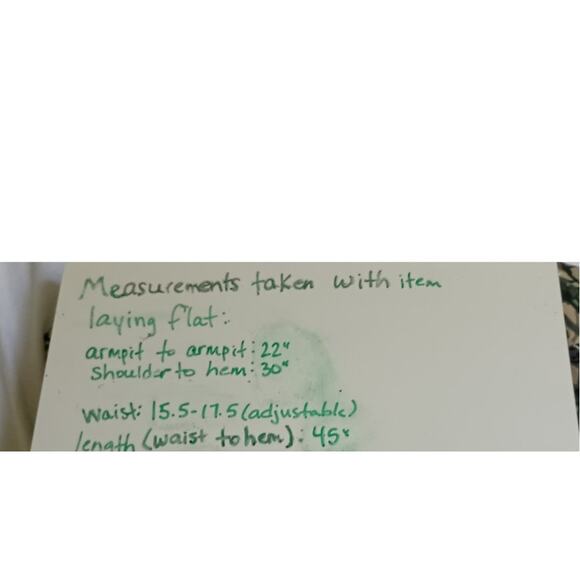 Measurements taken with item
laying flat:
armpit to armpit: 22"
shoulder to hem: 30"
waist: 15.5-17.5 (adjustable)
length (waist to hem): 45"